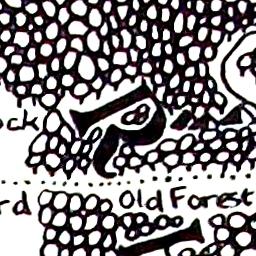 ock
rd Old Forest